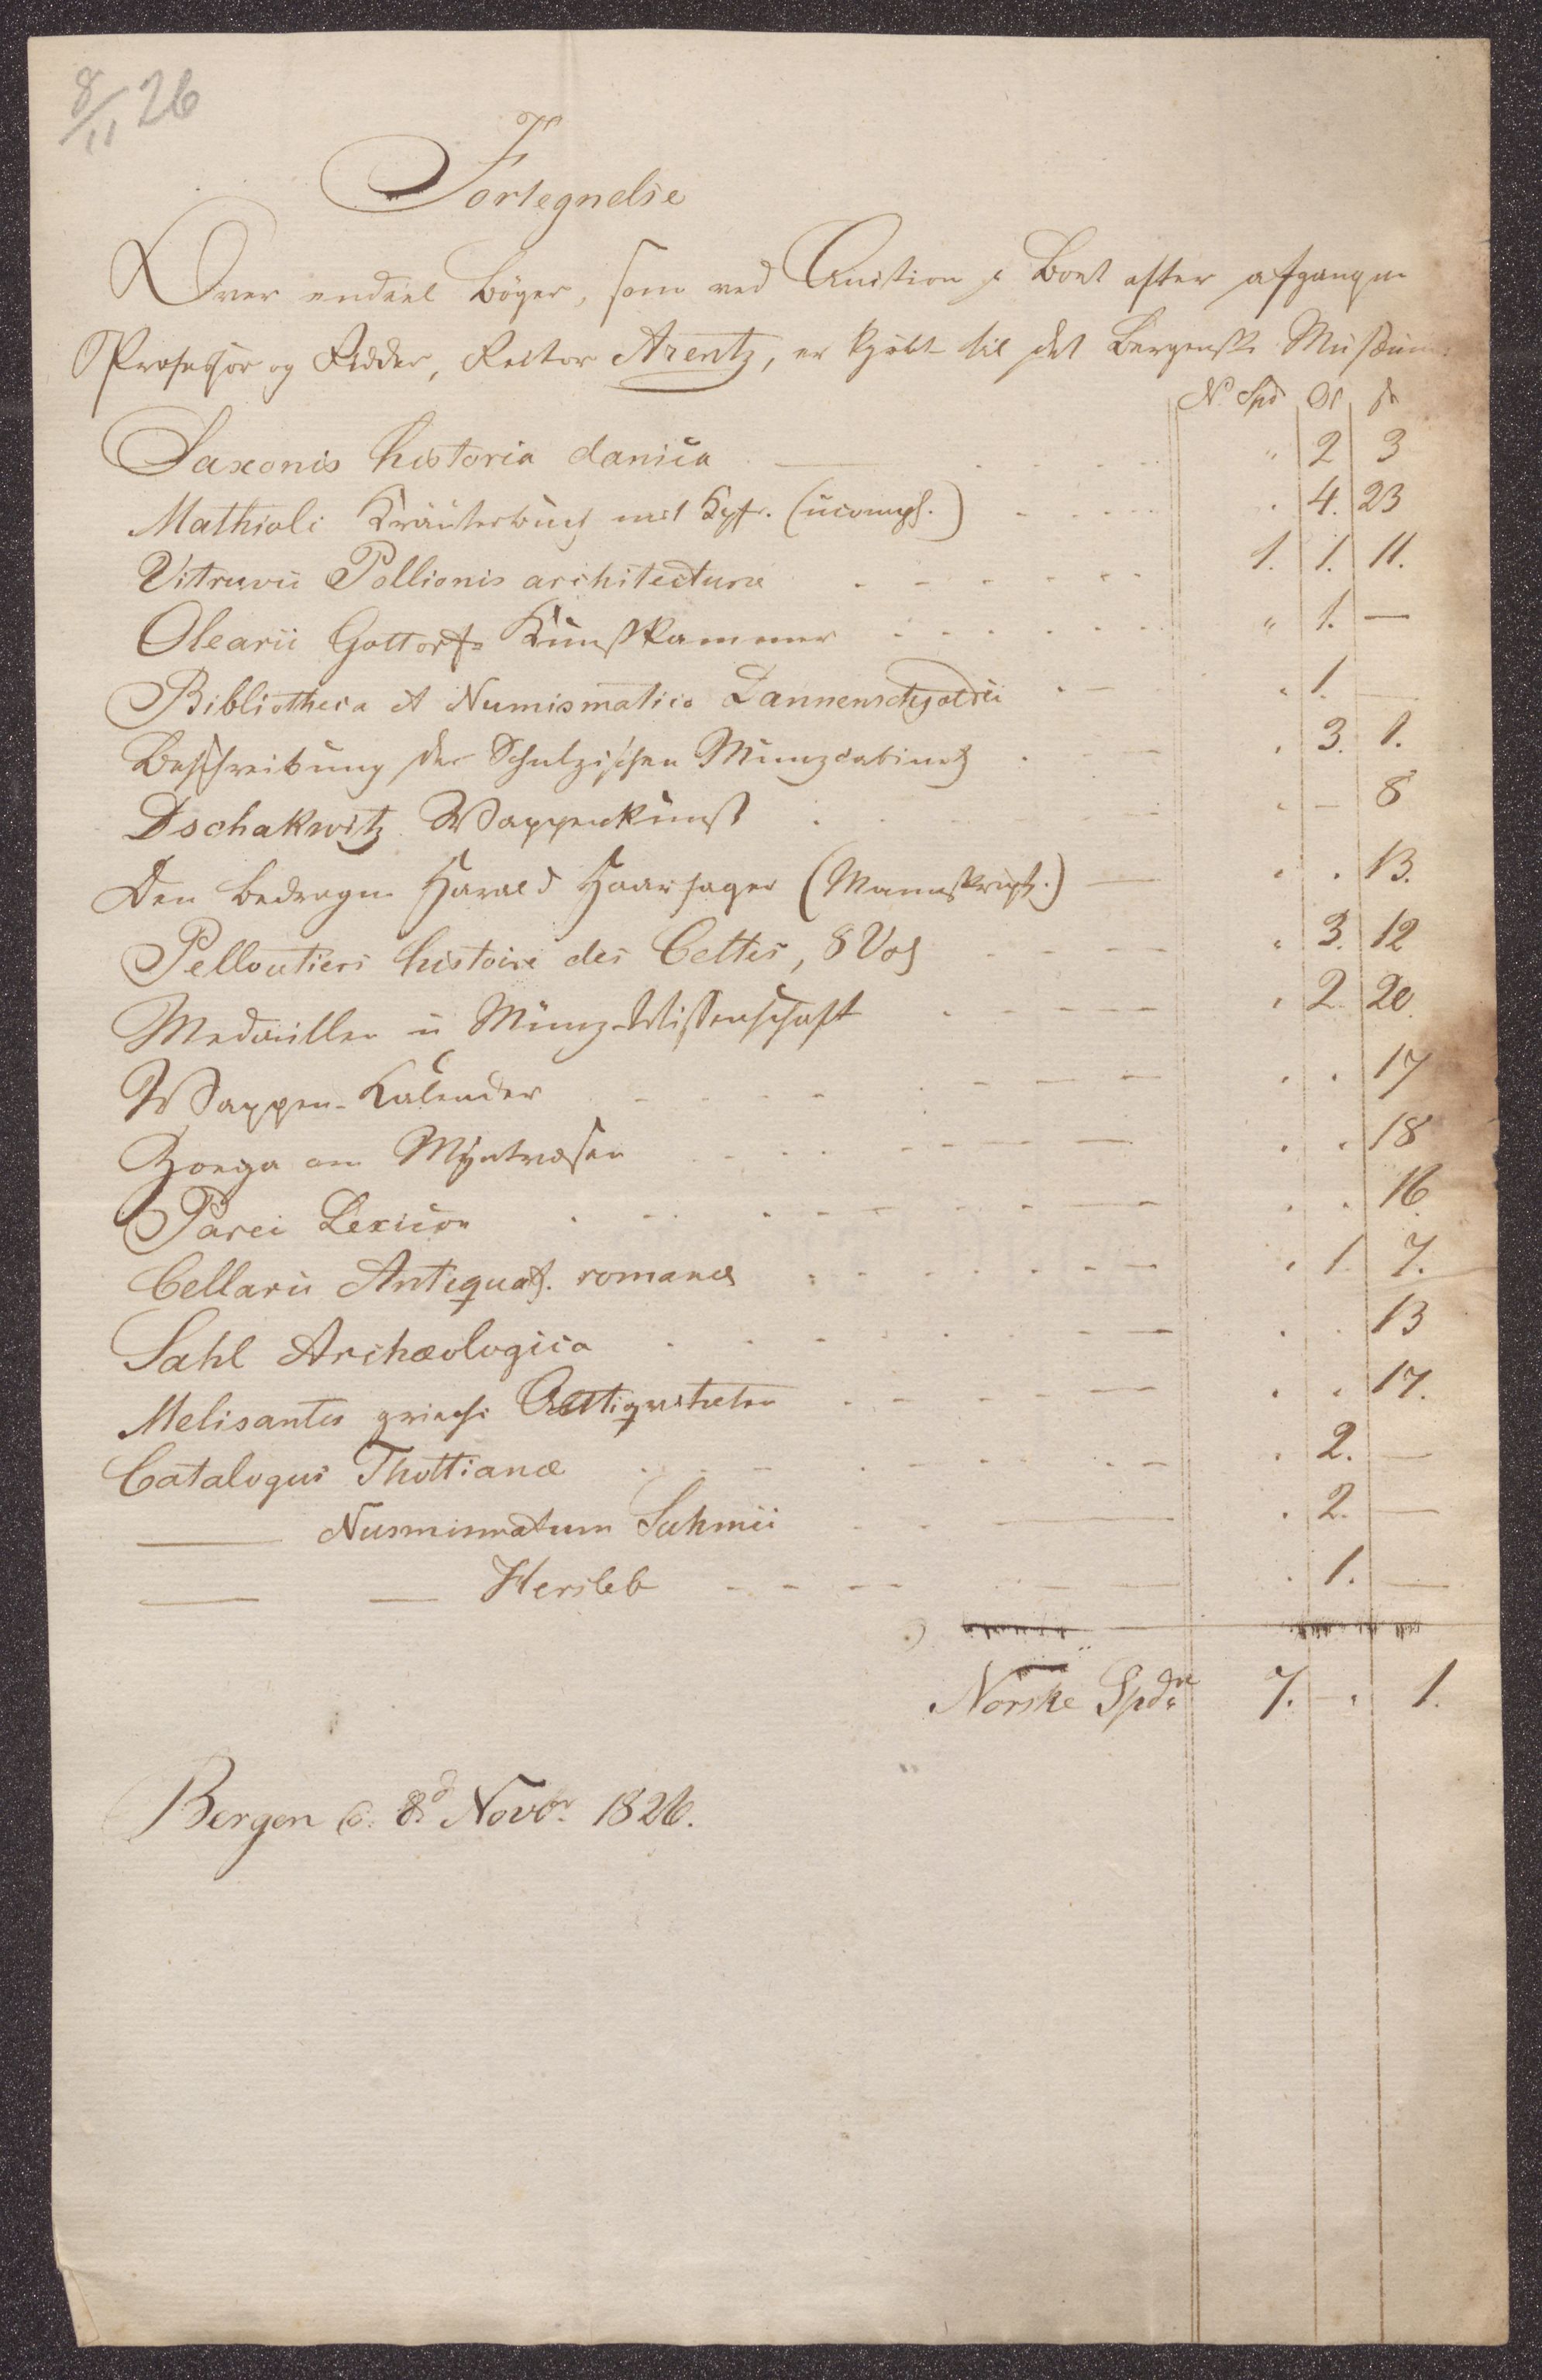 8/11 26
Fortegnelse
Over endeel Bøger, som ved Auction i Boet efter afgangne
Professor og Ridder, Rector Arentz, er kjøbt til det Bergenske Musæum.
N. Spd Ort ſk
Saxonis historia danica " 2 3
Mathioli Kräuterbuch mit Kpfr. (ucompl.) . 4. 23
Vitruvii Pollionis architectura 1. 1. 11.
Olearii Gottorfs Kunstkammer " 1. —
Bibliotheca et Numismatica Dannenschjoldii " 1. —
Beschreibung der Schulzischen Münzcabinets . 3. 1.
Dschakwitz Wappenkunst . — 8
Den bedragne Harald Haarfager (Manuskript.) . . 13.
Pelloutiers histoire des Celtes, 8 Vol . 3. 12
Medaillen u Münz-Wissenschaft . 2. 20.
Wappen-Kalender . . 17
Zoega om Myntvæsen . . 18
Parei Lexicon . . 16
Cellarii Antiquat. romanæ . 1. 7.
Sahl Archæologica . . 13
Melisantes griech: Antiquiteten . . 17.
Catalogus Thottianæ . 2. —
— Nusmismatum Suhmii . 2. —
— — Hersleb . 1. —
Norske Spdr 7. — . 1.
Bergen 8d Novbr. 1826.